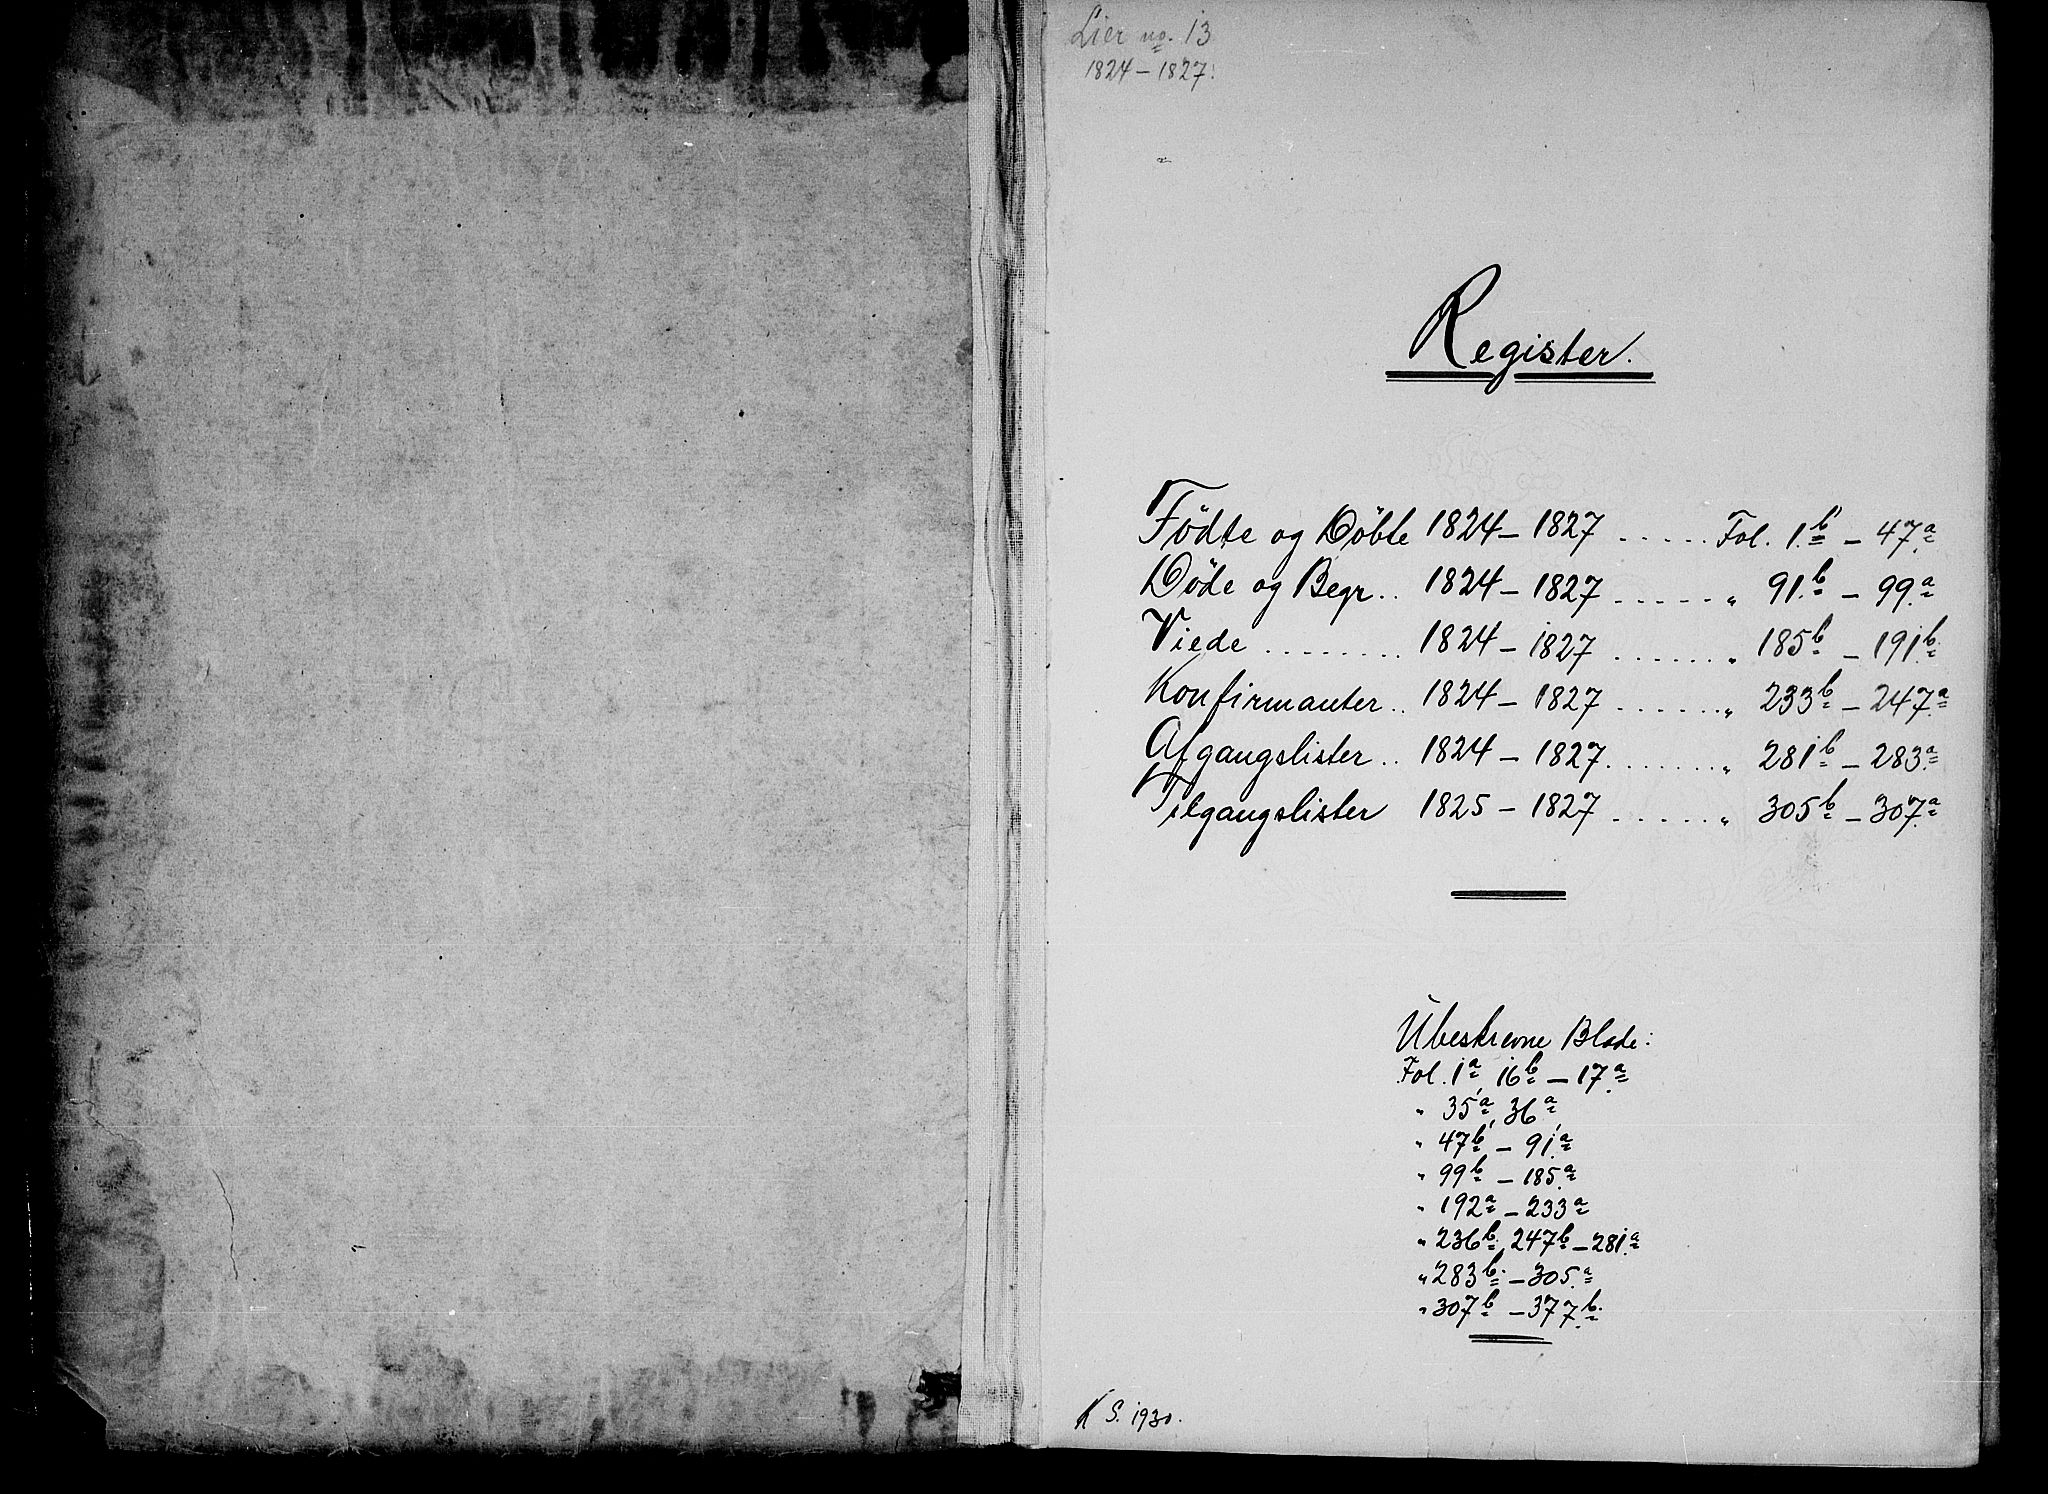 Lier no. 13
1824 – 1827.
Register.
Födte og Döbte 1824 – 1827 ..... Fol. 1.b – 47.a
Döde og Begr.. 1824 – 1827 ...... " 91.b – 99.a
Viede ........ 1824 – 1827 ....... " 185b – 191b.
Konfirmanter.. 1824 – 1827 ....... " 233b – 247.a
Afgangslister.. 1824 – 1827. ....... " 281b – 283.a
Tilgangslister 1825 – 1827 ...... " 305b – 307.a
Ubeskrevne Blade:
Fol. 1a, 16b – 17.a
" 35a, 36a
" 47b – 91.a
" 99b – 185.a
" 192a – 233a
" 236b, 247b – 281.a
" 283b. – 305.a
" 307b – 377b.
K S. 1930.